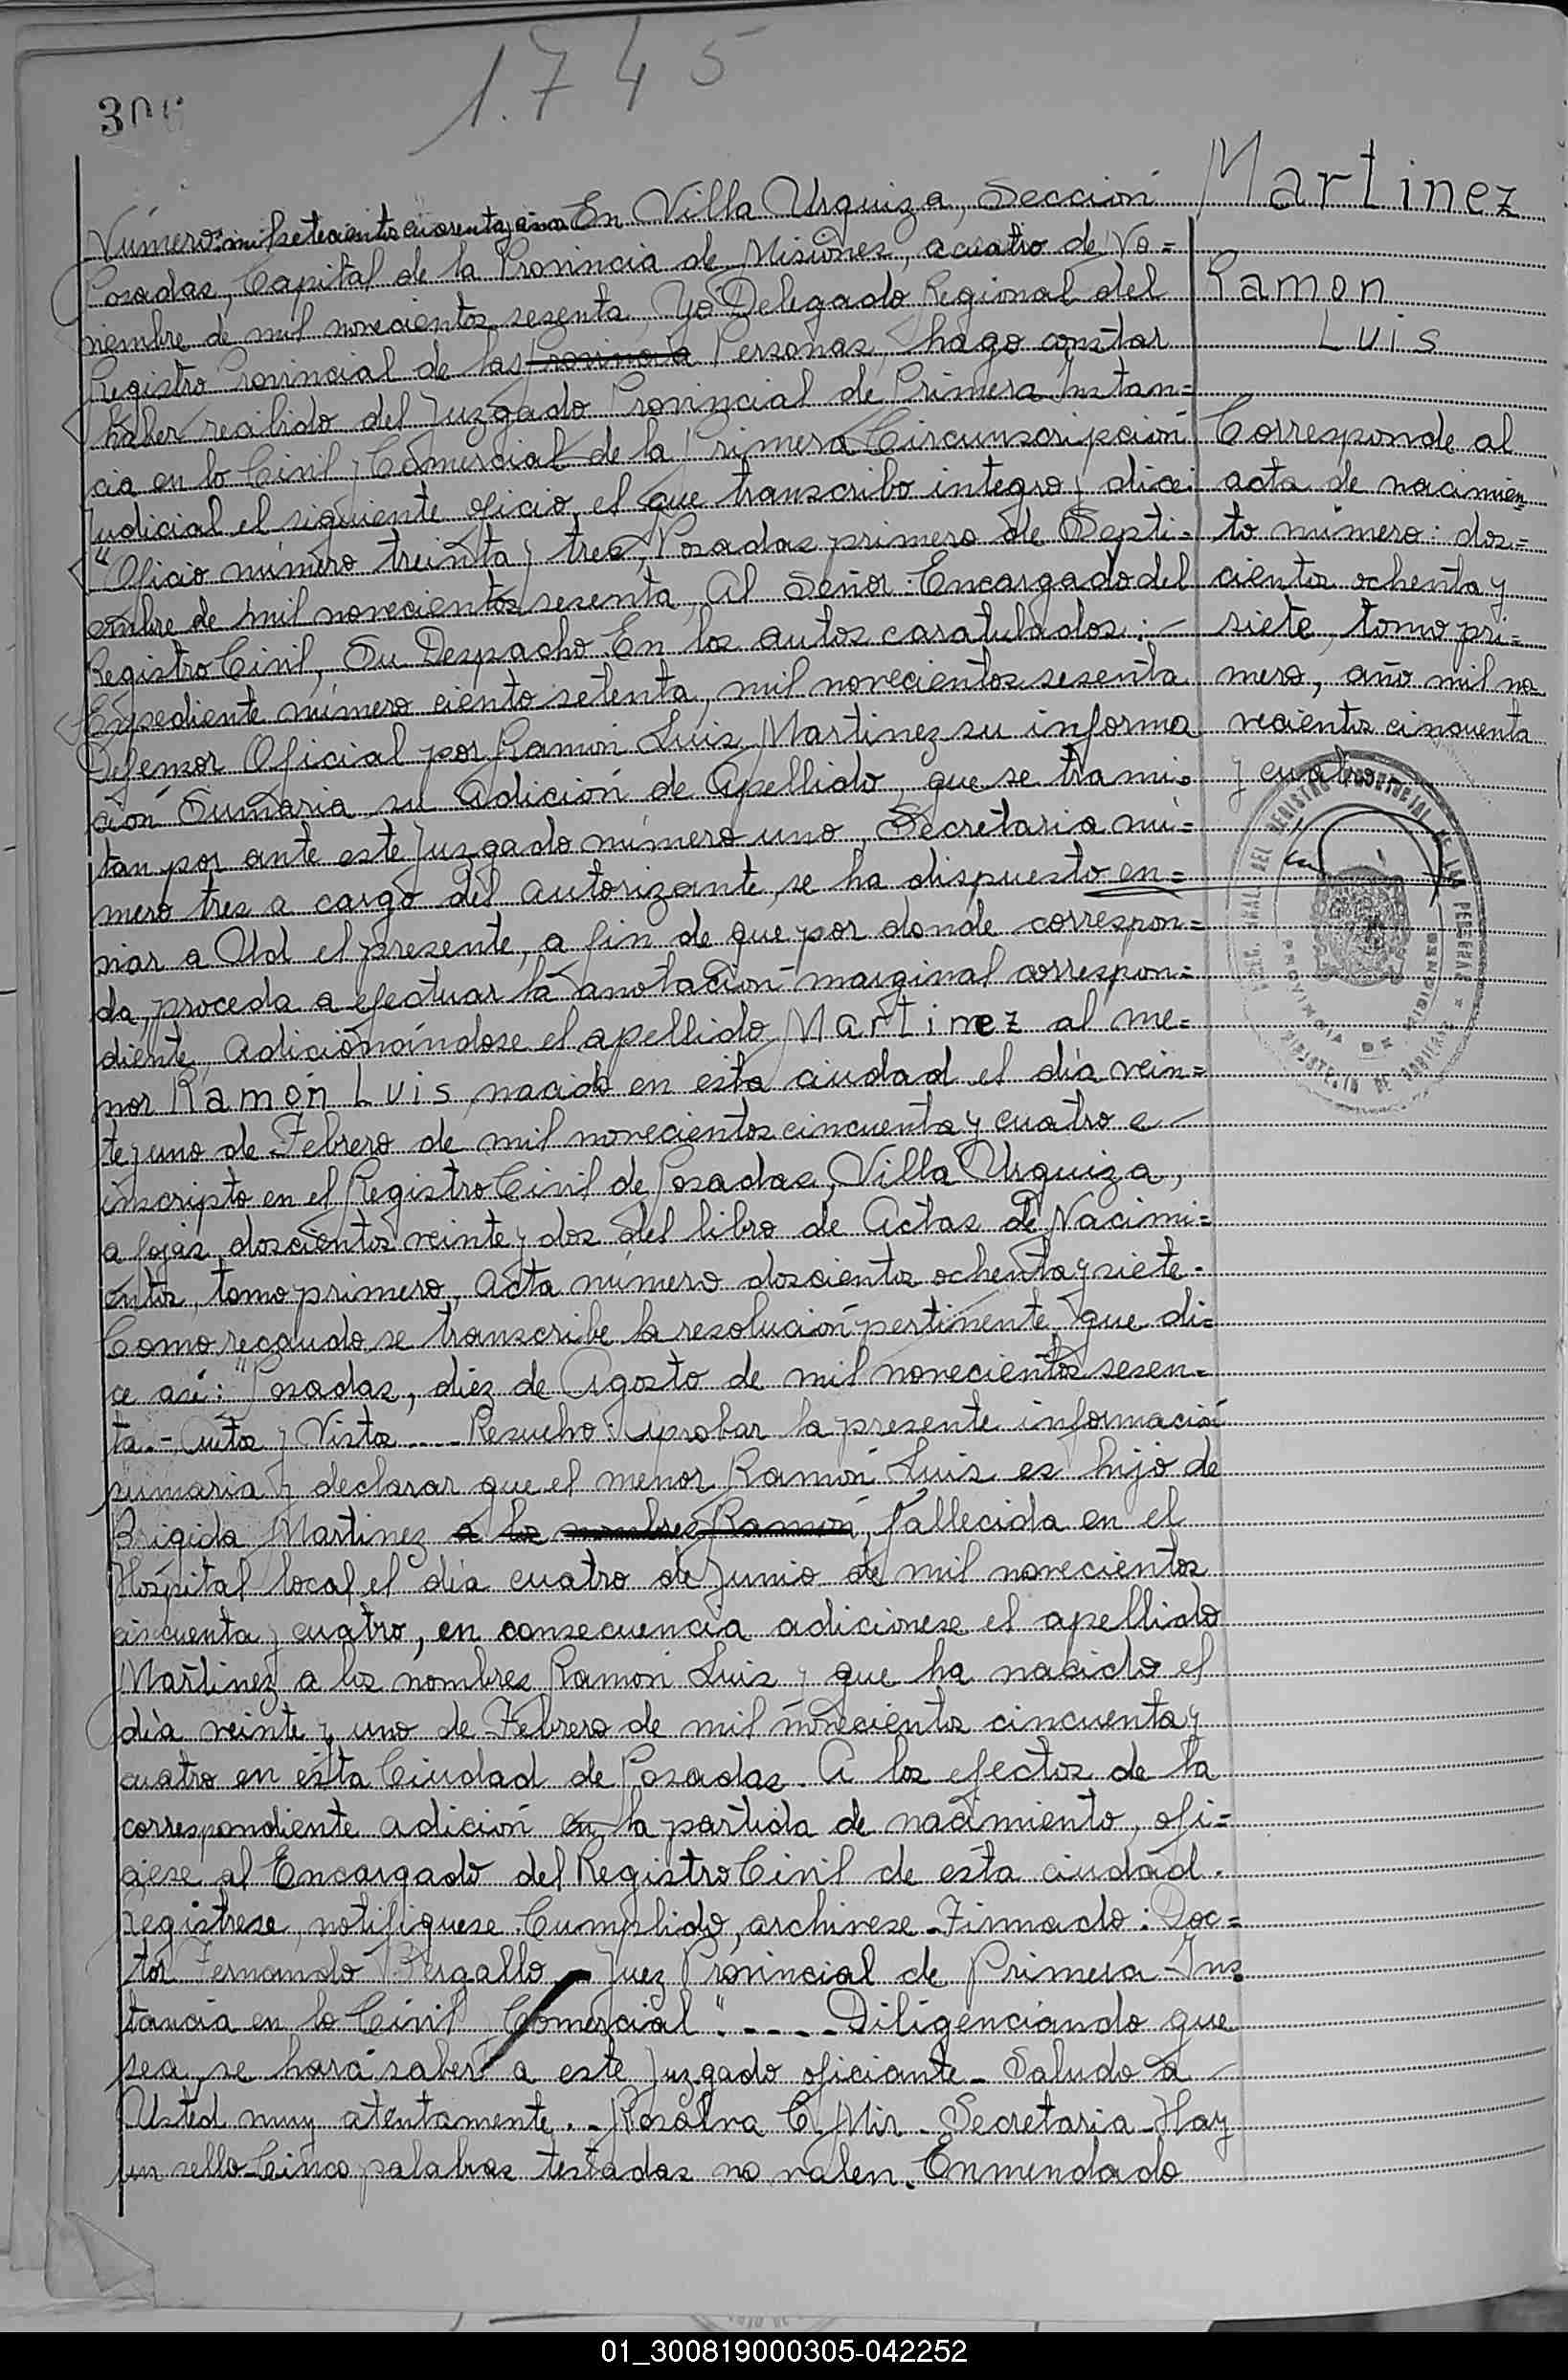 1.745
30
Martinez
Número: mil setecientos cuarenta y cinco En Villa Urquiza, Sección
Posadas, Capital de la Provincia de Misiones, a cuatro de No=
viembre de mil novecientos sesenta, Yo Delegado Regional del
Registro Provincial de las Provincia Personas, hago constar
haber recibido del Juzgado Provincial de Primera Instan=
cia en lo Civil y Comercial de la Primera Circunscripción
Judicial el siguiente oficio, el que transcribo integro y dice:
"Oficio número treinta y tres, Posadas primero de Septi=
embre de mil novecientos sesenta, Al Señor: Encargado del
Registro Civil, Su Despacho. En los autos caratulados: -
Expediente número ciento setenta, mil novecientos sesenta
Defensor Oficial por Ramón Luis Martinez su informa
ción Sumaria su Adición de Apellido, que se trami=
tan por ante este Juzgado número uno, Secretaria nú=
mero tres a cargo del autorizante, se ha dispuesto en=
viar a Ud el presente, a fin de que por donde correspon=
da, proceda a efectuar la anotación marginal correspon=
diente, Adicionándose el apellido Martinez al me=
nor Ramón Luis, nacido en esta ciudad el día vein=
te y uno de Febrero de mil novecientos cincuenta y cuatro e -
inscripto en el Registro Civil de Posadas, Villa Urquiza,
a fojas doscientos veinte y dos del libro de Actas de Nacimi=
entos, tomo primero, Acta número doscientos ochenta y siete.
Como recaudo se transcribe la resolución pertinente que di=
ce así: "Posadas, diez de Agosto de mil novecientos sesen=
ta.- Autos y Vistos .... Resuelvo: Aprobar la presente información
sumaria y declarar que el menor Ramón Luis es hijo de
Brigida Martinez a los nombres Ramón, fallecida en el
Hospital local el día cuatro de Junio de mil novecientos
cincuenta y cuatro, en consecuencia adicionese el apellido
Martinez a los nombres Ramón Luis y que ha nacido el
día veinte y uno de Febrero de mil novecientos cincuenta y
cuatro en esta Ciudad de Posadas. A los efectos de la
correspondiente adición en la partida de nacimiento, ofi=
ciese al Encargado del Registro Civil de esta ciudad.
registrese, notifiquese. Cumplido, archivese - Firmado: Doc=
tor Fernando Bergallo - Juez Provincial de Primera Ins=
tancia en lo Civil y Comercial". - - - - - Diligenciando que
sea, se hará saber a este Juzgado oficiante - Saludo a -
Usted muy atentamente. - Rosalva C. Mir - Secretaria - Hay
un sello - Cinco palabras testadas no valen. Enmendado
Ramon
Luis
Corresponde al
acta de nacimien=
to número: dos=
cientos ochenta y
siete, tomo pri=
mero, año mil no
vecientos cincuenta
y cuatro -
DEL REGISTRO PROVINCIAL DE LAS PERSONAS
PROVINCIA DE MISIONES
MINISTERIO DE GOBIERNO
01_300819000305-042252